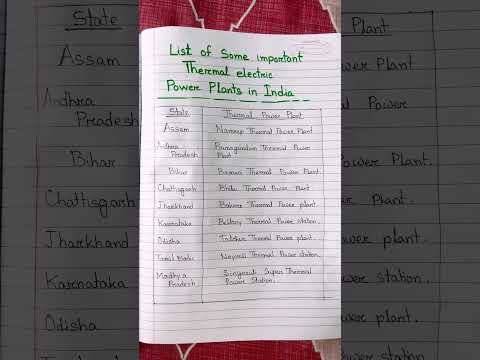 List of Some important
Thermal electric
Power Plants in India
State Thermal Power Plant
Assam Namrup Thermal Power Plant
Andhra Pradesh Ramagundam Thermal Power Plant
Bihar Barauni Thermal Power Plant.
Chattisgarh Bhilai Thermal Power Plant.
Jharkhand Bokaro Thermal Power plant.
Karnataka Bellary Thermal Power station.
Odisha Talcher Thermal Power plant.
Tamil Nadu Neyveli Thermal Power station.
Madhya Pradesh Singrauli Super Thermal Power Station.
State
Assam
Andhra
Pradesh
Bihar
Chattisgarh
Jharkhand
Karnataka
Odisha
Plant
Plant
Power
Power Plant.
Plant.
plant.
station.
plant.